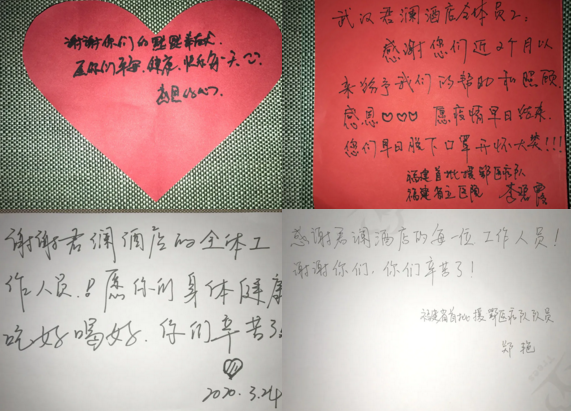 谢谢你们的默默奉献
愿你们平安、健康、快乐每一天
武汉君澜酒店全体员工:
感谢您们近2个月以
来给予我们的帮助和照顾
感恩♡♡♡ 愿疫情早日结束.
您们早日脱下口罩开怀大笑!!!
福建首批援鄂医疗队
福建省立医院 李碧霞
谢谢君澜酒店的全体工
作人员!愿你们身体健康
吃好喝好.你们辛苦了。
2020.3.24
感谢君澜酒店的每一位工作人员!
谢谢你们,你们辛苦了!
福建省首批援鄂医疗队队员
郑艳